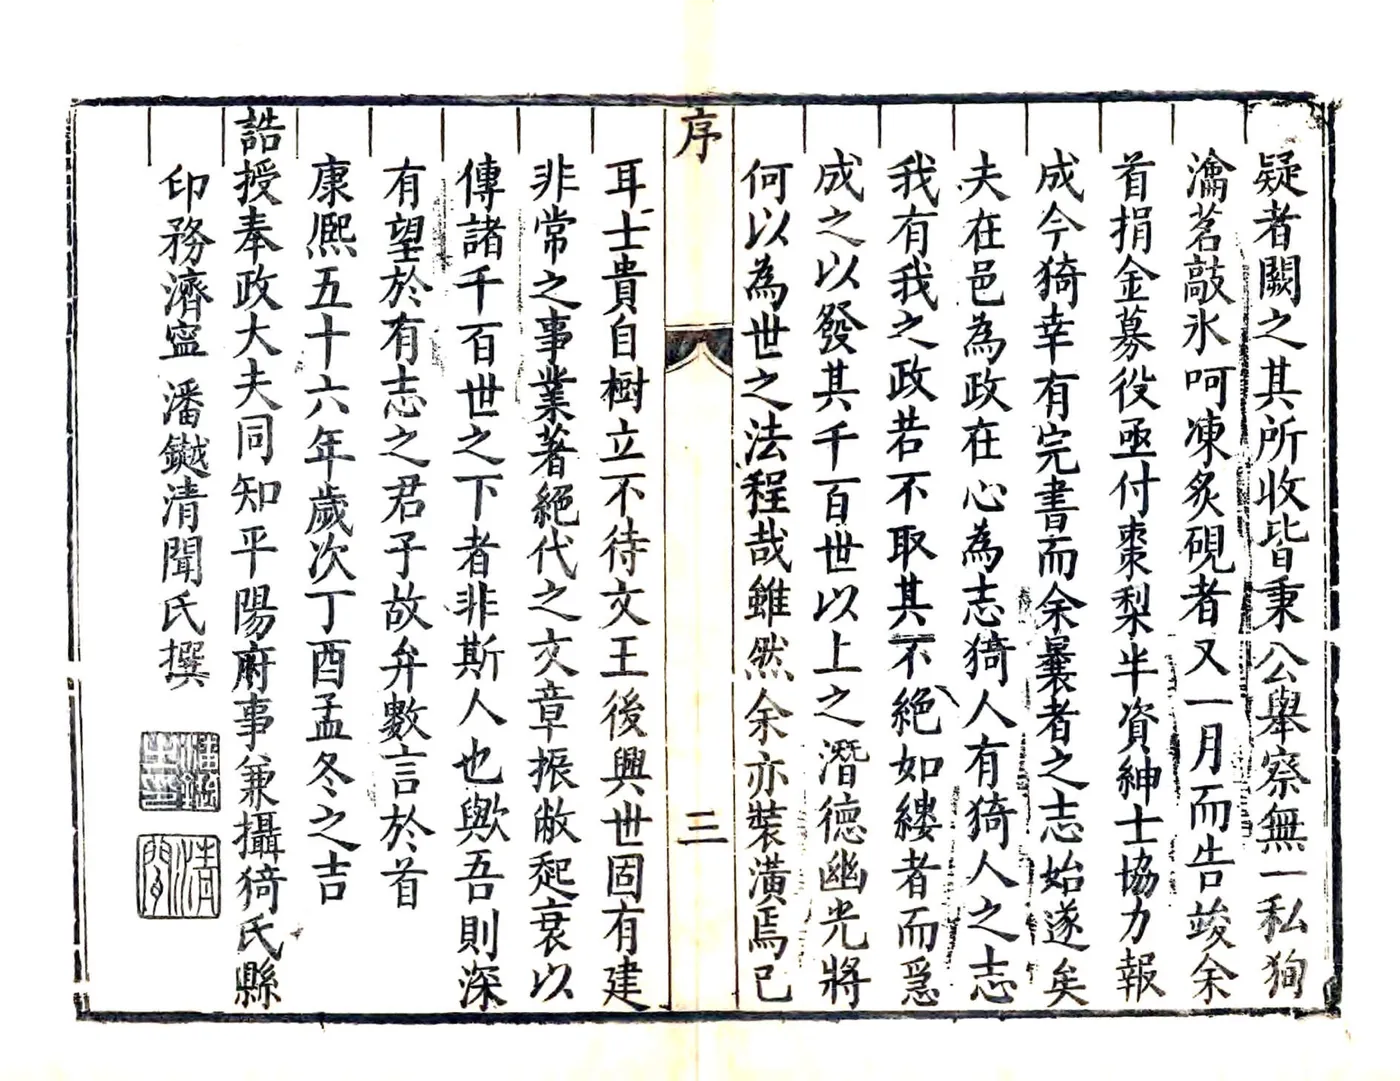 疑者闕之其所收皆秉公舉察無一私狥
瀹茗敲氷呵凍炙硯者又一月而告竣余
首捐金募役亟付棗梨半資紳士協力報
成今猗幸有完書而余曩者之志始遂矣
夫在邑為政在心為志猗人有猗人之志
我有我之政若不取其不絕如縷者而爲
成之以發其千百世以上之潛德幽光將
何以為世之法程哉雖然余亦裝潢焉已
序
三
耳士貴自樹立不待文王後興世固有建
非常之事業著絕代之文章振敝起衰以
傳諸千百世之下者非斯人也歟吾則深
有望於有志之君子故弁數言於首
康熙五十六年歲次丁酉孟冬之吉
誥授奉政大夫同知平陽府事兼攝猗氏縣
印務濟寧潘鉞清聞氏撰
清聞